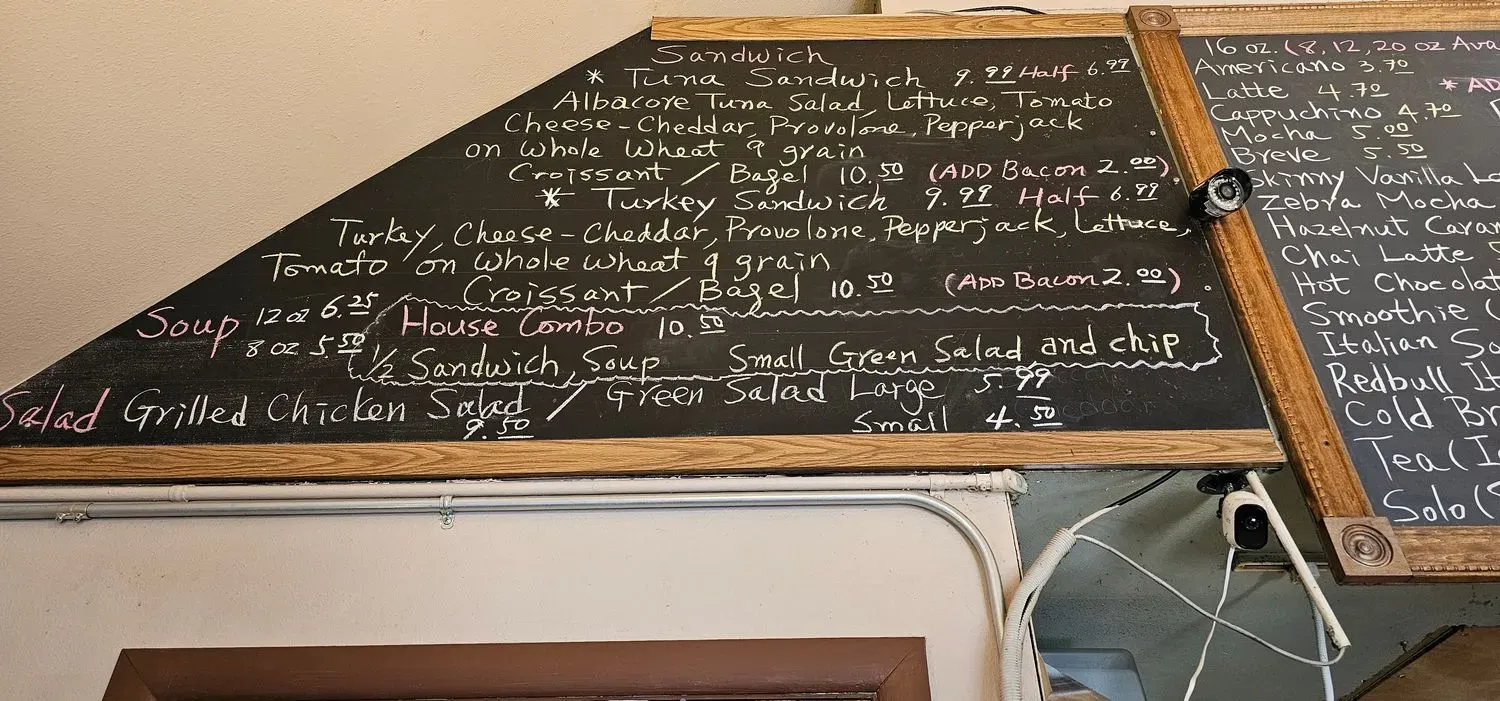 Sandwich
* Tuna Sandwich 9.99 Half 6.99
Albacore Tuna Salad, Lettuce, Tomato
Cheese-Cheddar, Provolone, Pepperjack
on Whole Wheat 9 grain
Croissant / Bagel 10.50 (ADD Bacon 2.00)
* Turkey Sandwich 9.99 Half 6.99
Turkey, Cheese-Cheddar, Provolone, Pepperjack, Lettuce,
Tomato on Whole Wheat 9 grain
Croissant / Bagel 10.50 (ADD Bacon 2.00)
Soup 12 oz 6.25
8 oz 5.50
House Combo 10.50
1/2 Sandwich, Soup Small Green Salad and chip
Salad Grilled Chicken Salad / Green Salad Large 5.99
9.50 Small 4.50
16 oz. (8, 12, 20 oz Ava
Americano 3.70
Latte 4.70 * AD
Cappuchino 4.70
Mocha 5.00
Breve 5.50
Skinny Vanilla La
Zebra Mocha
Hazelnut Caram
Chai Latte 5
Hot Chocolat
Smoothie (
Italian So
Redbull It
Cold Br
Tea (Ic
Solo (